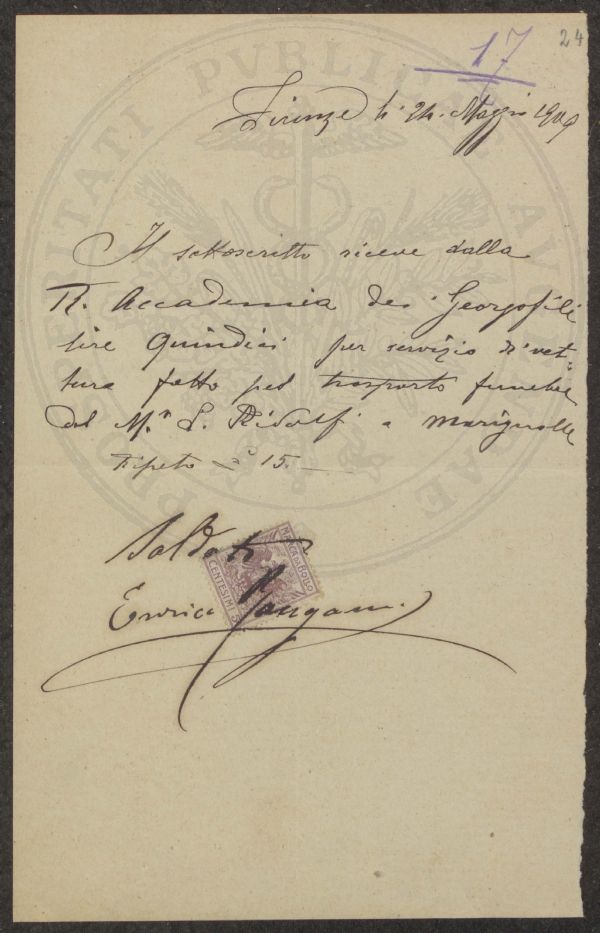 17
24
Firenze li 24. Maggio 1909
Il sottoscritto riceve dalla
R. Accademia dei Georgofili
lire Quindici per servizio di vet=
tura fatto pel trasporto funebre
del M.se L. Ridolfi a Marignolle
Ripeto £ 15.
Saldato
Enrico
MARCA DA BOLLO
CENTESIMI 5
PROSPERITATI PUBLICAE AUGENDAE